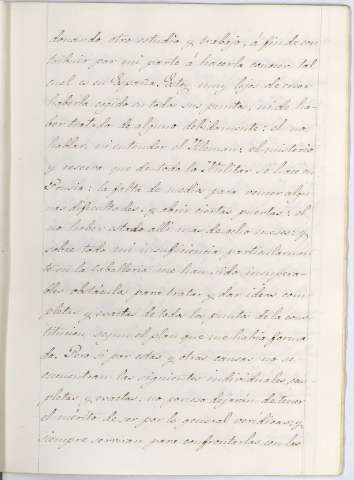 donando otro estudio y trabajo, á fin de con
tribuir por mi parte á hacerla conocer tal
cual es en España. Estoy muy lejos de creer
haberla cogido en todos sus puntos, ni de ha
ber tratado de alguno debidamente: el no
hablar, ni entender el Aleman: el misterio
y reserva que de todo lo Militar se hace en
Prusia: la falta de medios para vencer algu
nas dificultades, y abrir ciertas puertas: el
no haber estado alli mas de ocho meses: y
sobre todo mi insuficiencia particularmen
te en la caballeria me han sido insupera
bles obstáculos para tratar y dar ideas com
pletas y exactas de todos los puntos de la cons
titucion segun el plan que me habia forma
do. Pero si por estas y otras causas no se
encuentran las siguientes individuales, com
pletas, y exactas: no por eso dejarán de tener
el mérito de ser por lo general verídicas; y
siempre serviran para confrontarlas con las